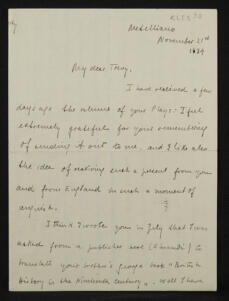 November 21st
1939
My dear Trevy,
I have received a few
days ago the volume of your Plays: I feel
extremely grateful for your remembering
of sending it out to me, and I like also
the idea of receiving such a present from you
and from England in such a moment of
anguish.
I think I wrote you in July that I was
asked from a publisher here (Einaudi) to
translate your brother's george book "British
History in the Nineteenth century". Well I have